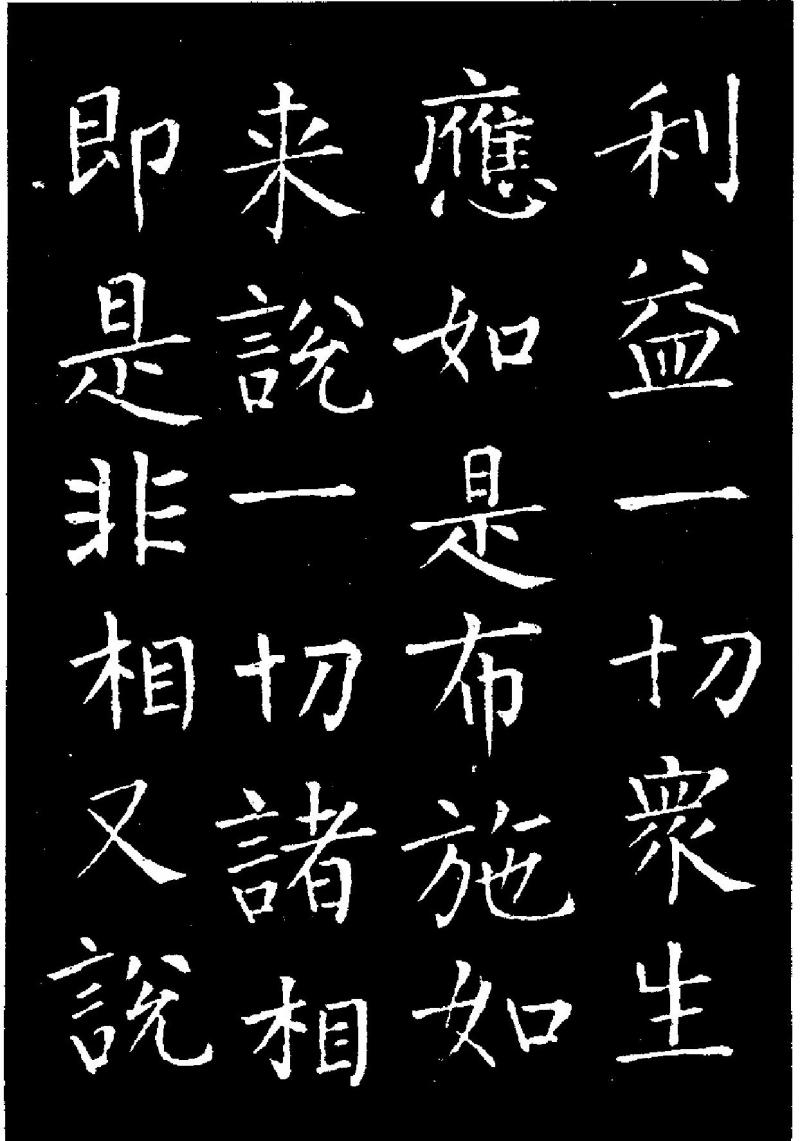 利益一切衆生
應如是布施如
来說一切諸相
即是非相又說